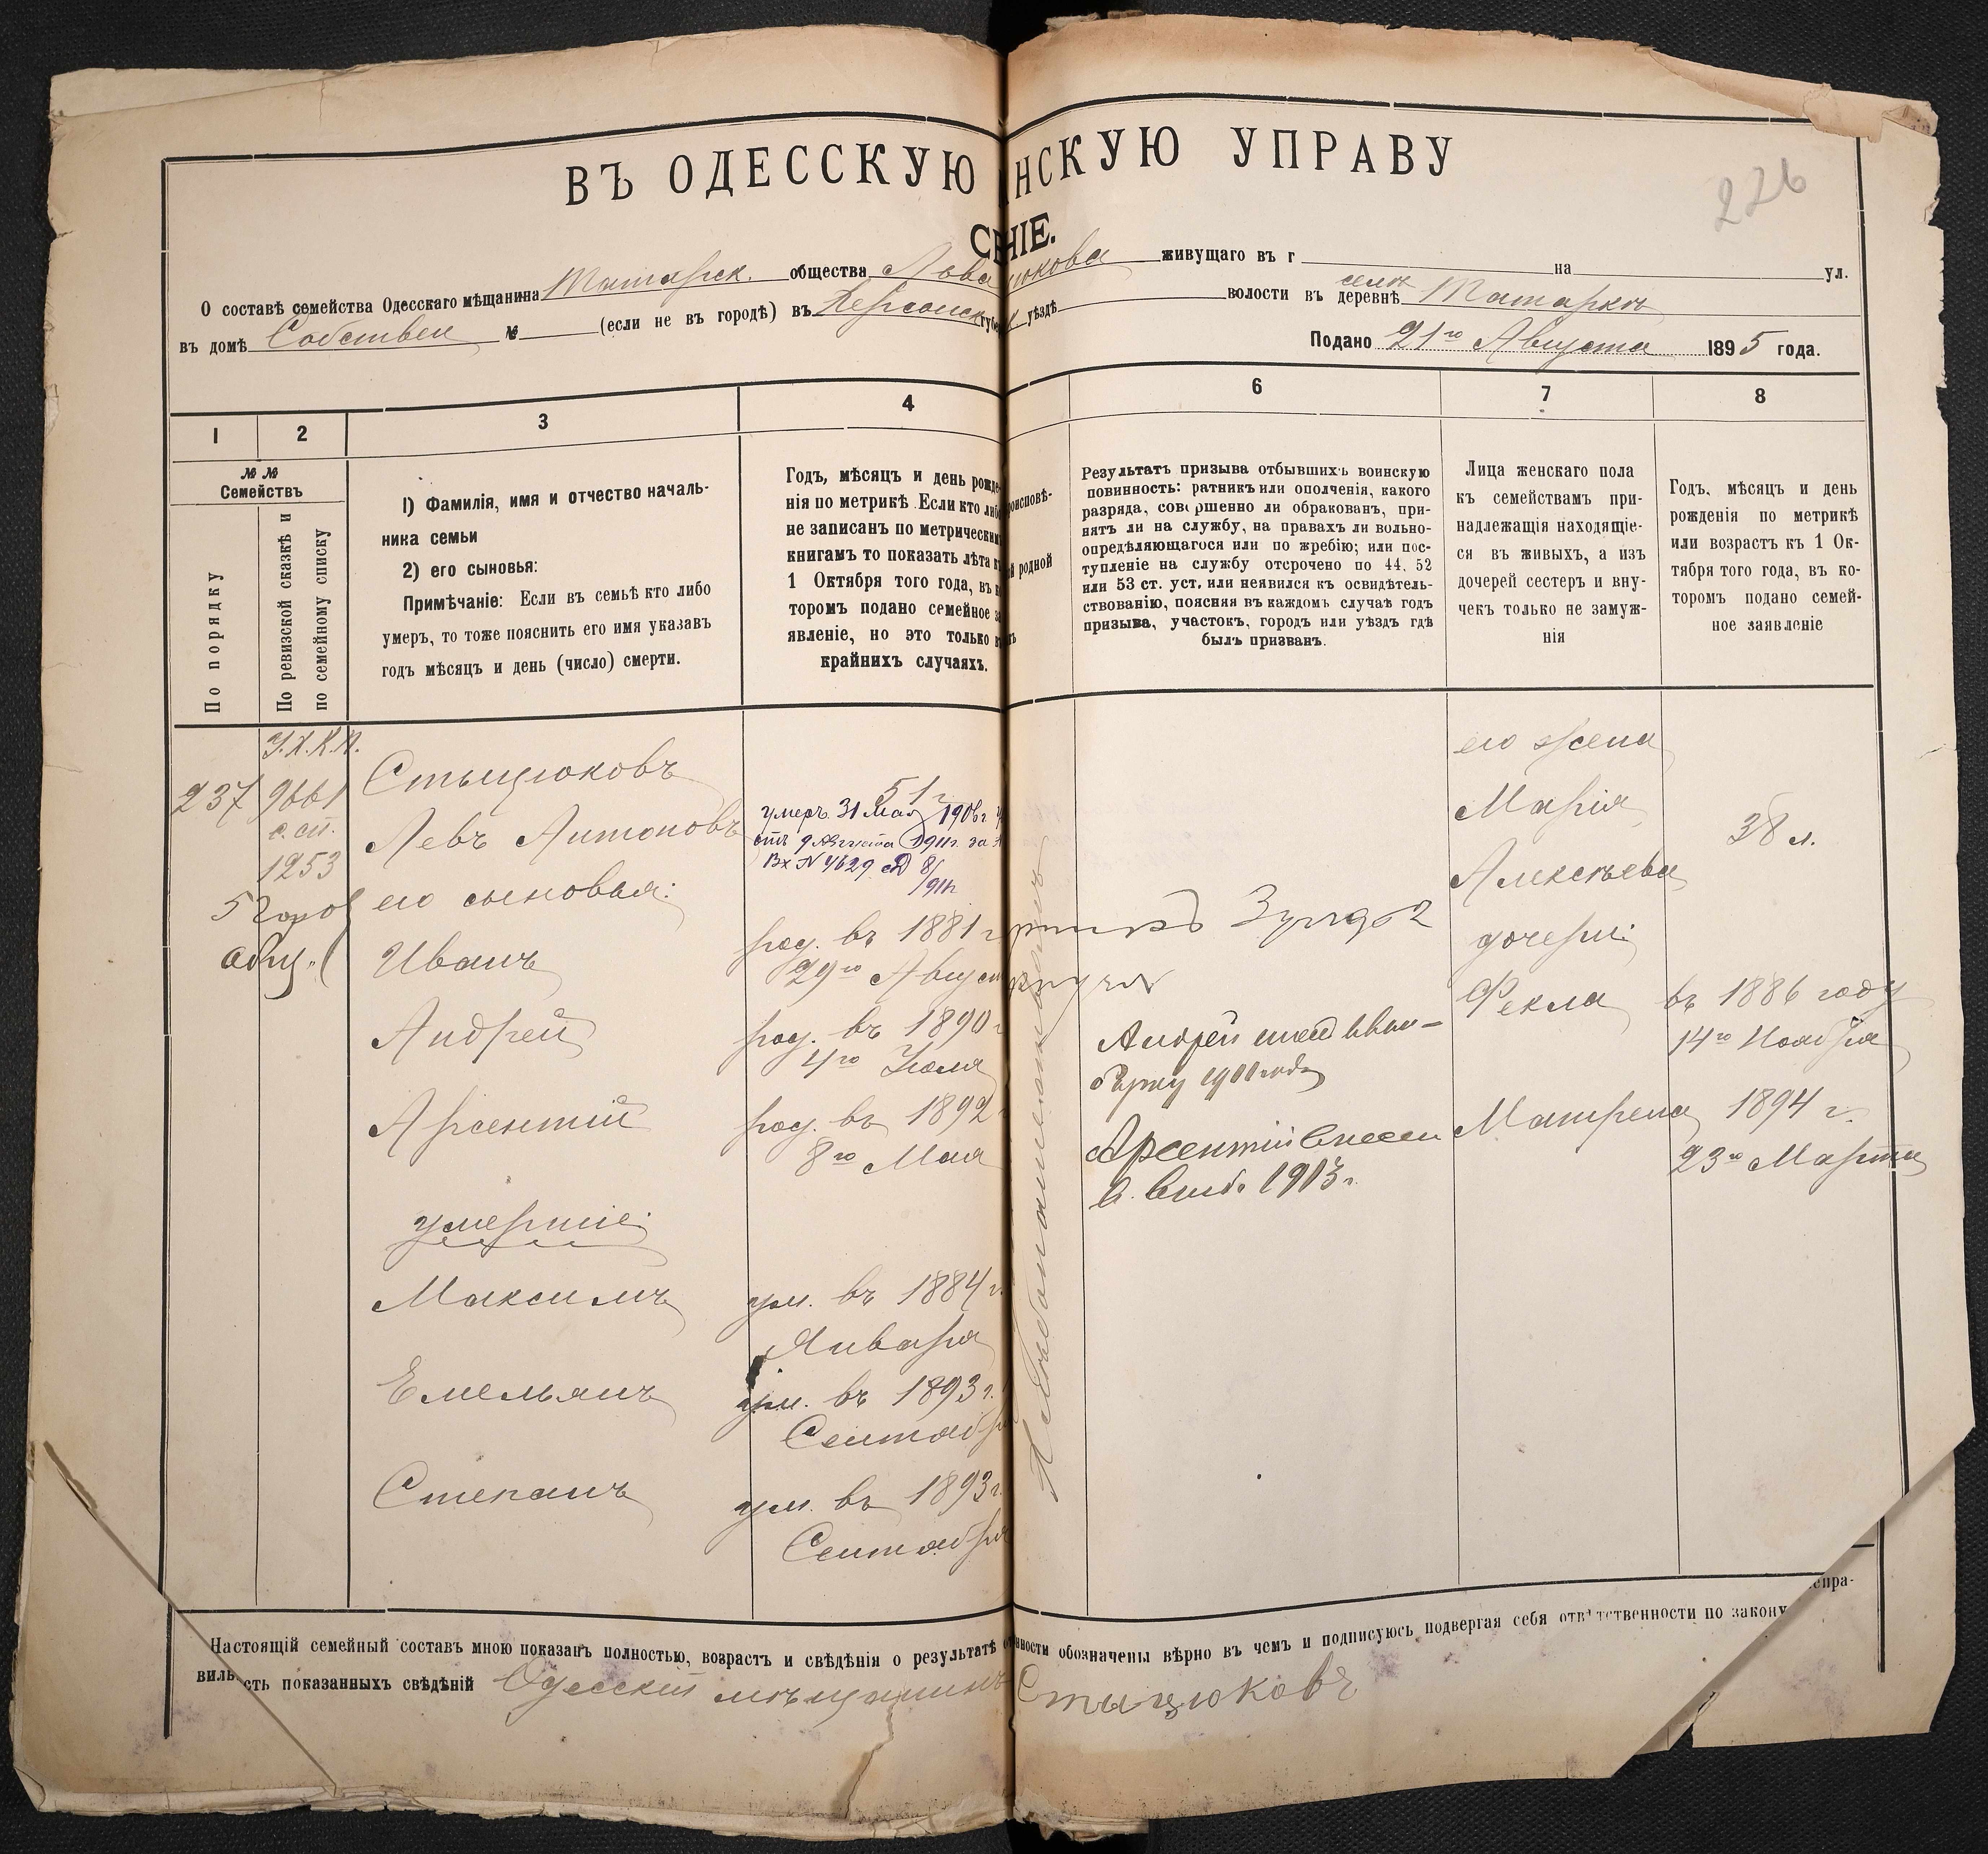 226
ВЪ ОДЕССКУЮ НСКУЮ УПРАВУ
НІЕ.
О составѣ семейства Одесскаго мѣщанина Татарск. общества живущаго въ г на ул.
въ домѣ Собствен № (если не въ городѣ) въ Херсонск уѣздѣ волости въ деревнѣ селѣ Татаркѣ
Подано 21го Августа 1895 года.
1 2 3 4 6 7 8
№ №
Семействъ
По порядку
По ревизской сказкѣ и
по семейному списку
1) Фамилія, имя и отчество началь-
ника семьи
2) его сыновья:
Примѣчаніе: Если въ семьѣ кто либо
умеръ, то тоже пояснить его имя указавъ
годъ мѣсяцъ и день (число) смерти.
Годъ, мѣсяцъ и день рожде-
нія по метрикѣ Если кто либо
не записанъ по метрическим
книгамъ то показать лѣта к
1 Октября того года, въ к
торомъ подано семейное за
явленіе, но это только в
крайнихъ случаяхъ.
роисповѣ-
й родной
Результатъ призыва отбывшихъ воинскую
повинность: ратникъ или ополченія, какого
разряда, совершенно ли обракованъ, при-
нятъ ли на службу, на правахъ ли вольно-
опредѣляющагося или по жребію; или пос-
тупленіе на службу отсрочено по 44, 52
или 53 ст. уст. или неявился къ освидѣтель-
ствованію, поясняя въ каждомъ случаѣ годъ
призыва, участокъ, городъ или уѣздъ гдѣ
былъ призванъ.
Лица женскаго пола
къ семействамъ при-
надлежащія находящіе-
ся въ живыхъ, а изъ
дочерей сестеръ и вну-
чекъ только не замуж-
нія
Годъ, мѣсяцъ и день
рожденія по метрикѣ
или возрастъ къ 1 Ок-
тября того года, въ ко-
торомъ подано семей-
ное заявленіе
237
9661
с. сп.
1253
Стыцюковъ
Левъ Антоновъ
его сыновья:
Иванъ
Андрей
Арсентій
умершіе:
Максимъ
Емельянъ
Степанъ
51 г
умеръ 31 Мая 1906 г
9 Августа 1911г. за
Вх № 4629
род. въ 1881 г
29го Август
род. въ 1890 г
4го Іюля
род. въ 1892
8го Мая
ум. въ 1884 г
Января
ум. въ 1893 г.
Сентябр
ум. въ 1893 г.
Сентября
Андрей
1911 года
Арсентій внесен
1913 г.
его жена
Марія
Алексѣева
дочери:
Фекла
Матрена
38 л.
въ 1886 году
14го Ноября
1894 г.
23го Марта
Настоящій семейный составъ мною показанъ полностью, возрастъ и свѣдѣнія о результатѣ нности обозначены вѣрно въ чемъ и подписуюсь подвергая себя отвѣтственности по закону епра-
виль сть показанныхъ свѣдѣній Одесскій мѣщанинъ Стыцюковъ